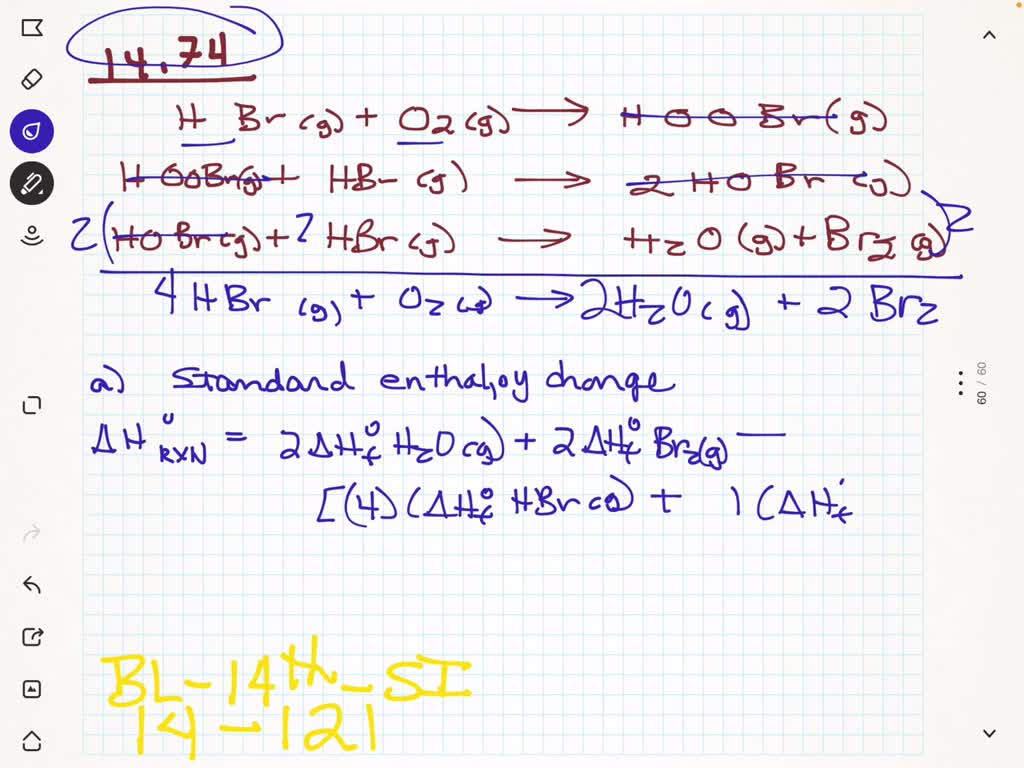 14.74
H Br (g) + O2 (g) → HOOBr (g)
HOOBr(g) + HBr (g) → 2 HOBr (g)
2 (HOBr(g) + 2 HBr (g) → H2O (g) + Br2 (g)) 2
4 HBr (g) + O2 (g) → 2H2O (g) + 2 Br2
a) Standard enthalpy change
ΔH° RXN = 2ΔHf° H2O (g) + 2ΔHf° Br2(g) —
[(4) (ΔHf° HBr (g)) + 1 (ΔHf°
60 / 60
BL-14th-SI
14-121